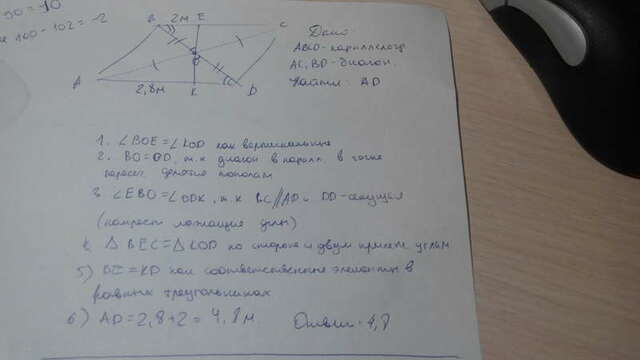 90 = -10
100 - 102 = -2
B 2м E C
O
A 2,8м K D
Дано:
ABCD - параллелогр
AC, BD - диагон.
Найти: AD
1. ∠BOE = ∠KOD как вертикальные
2. BO = OD, т.к диагон в паралл. в точке
пересеч делятся пополам
3. ∠EBO = ∠ODK, т.к BC // AD и BD - секущая
(накрест лежащие углы)
4. △ BEC = △ KOD по стороне и двум прилеж углам
5) BE = KD как соответственные элементы в
равных треугольниках
6) AD = 2,8 + 2 = 4,8 м. Ответ: 4,8